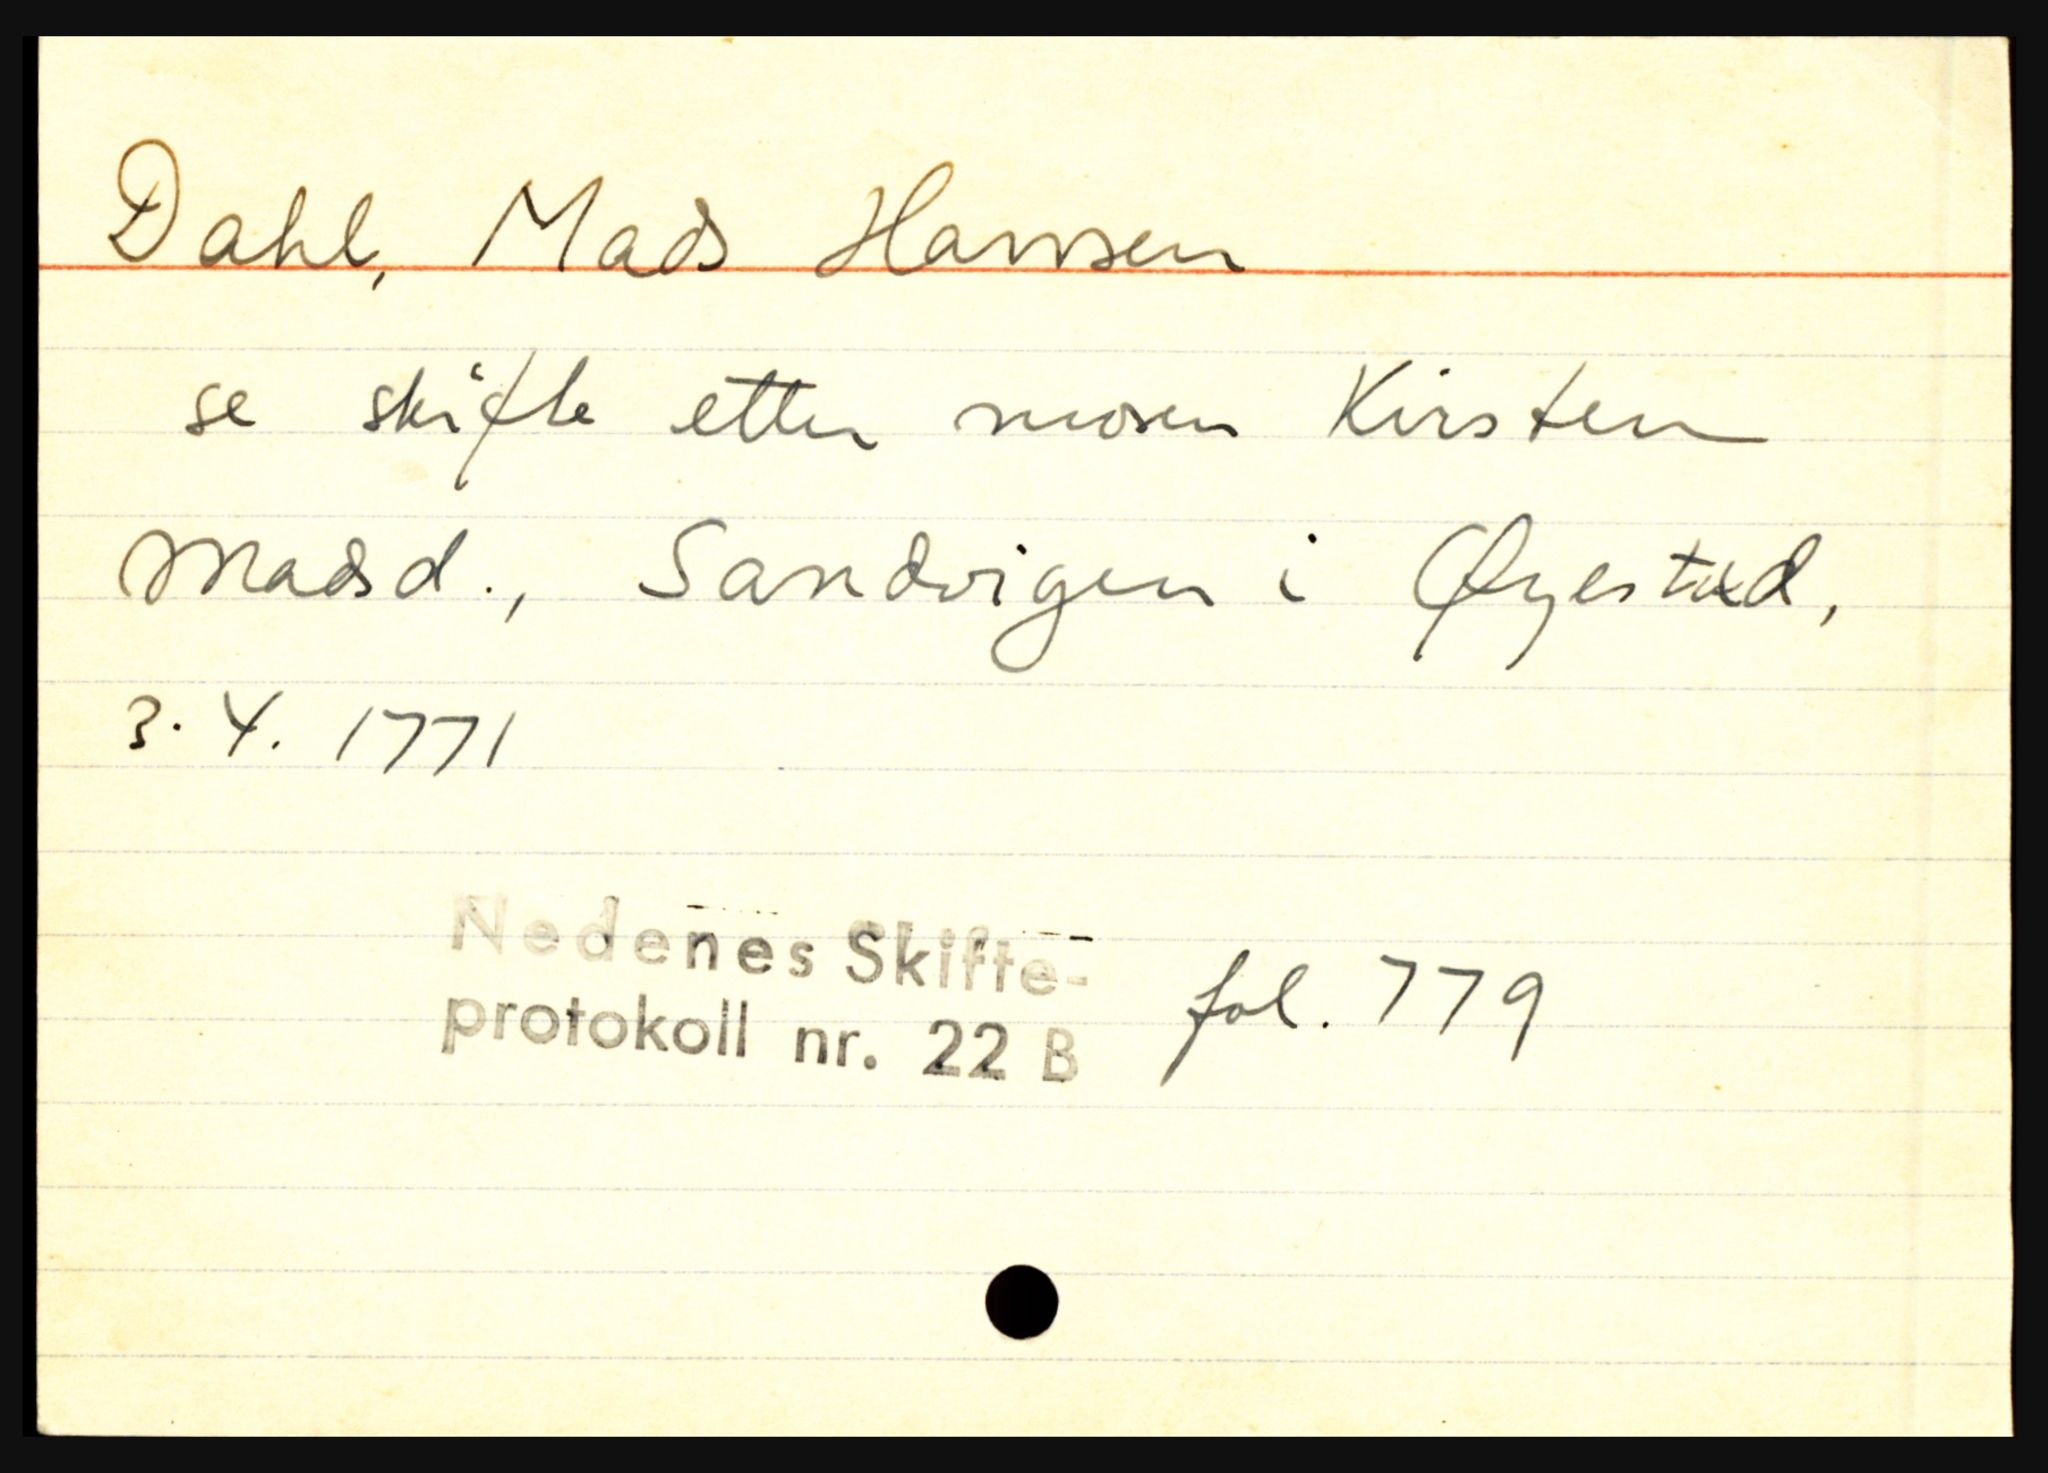 Dahl, Mads Hansen
se skifte etter moren Kirsten
Madsd., Sandvigen i Øyestad,
3. 4. 1771
Nedenes Skifte-
protokoll nr. 22 B fol. 779